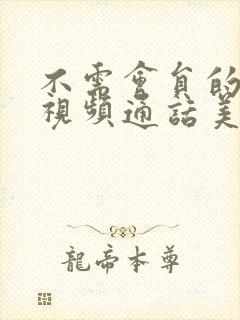 不需會員的
視頻通話美
龍帝本尊